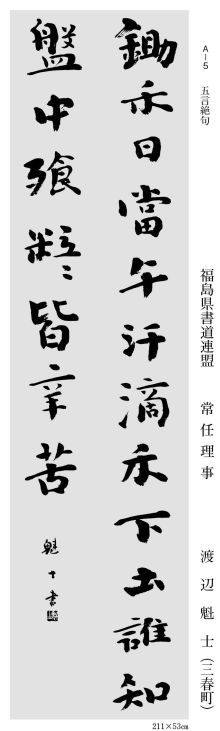 A-5 五言絶句
福島県書道連盟 常任理事 渡辺魁士(三春町)
鋤禾日當午汗滴禾下土誰知
盤中飱粒々皆辛苦
魁士書
211×53cm